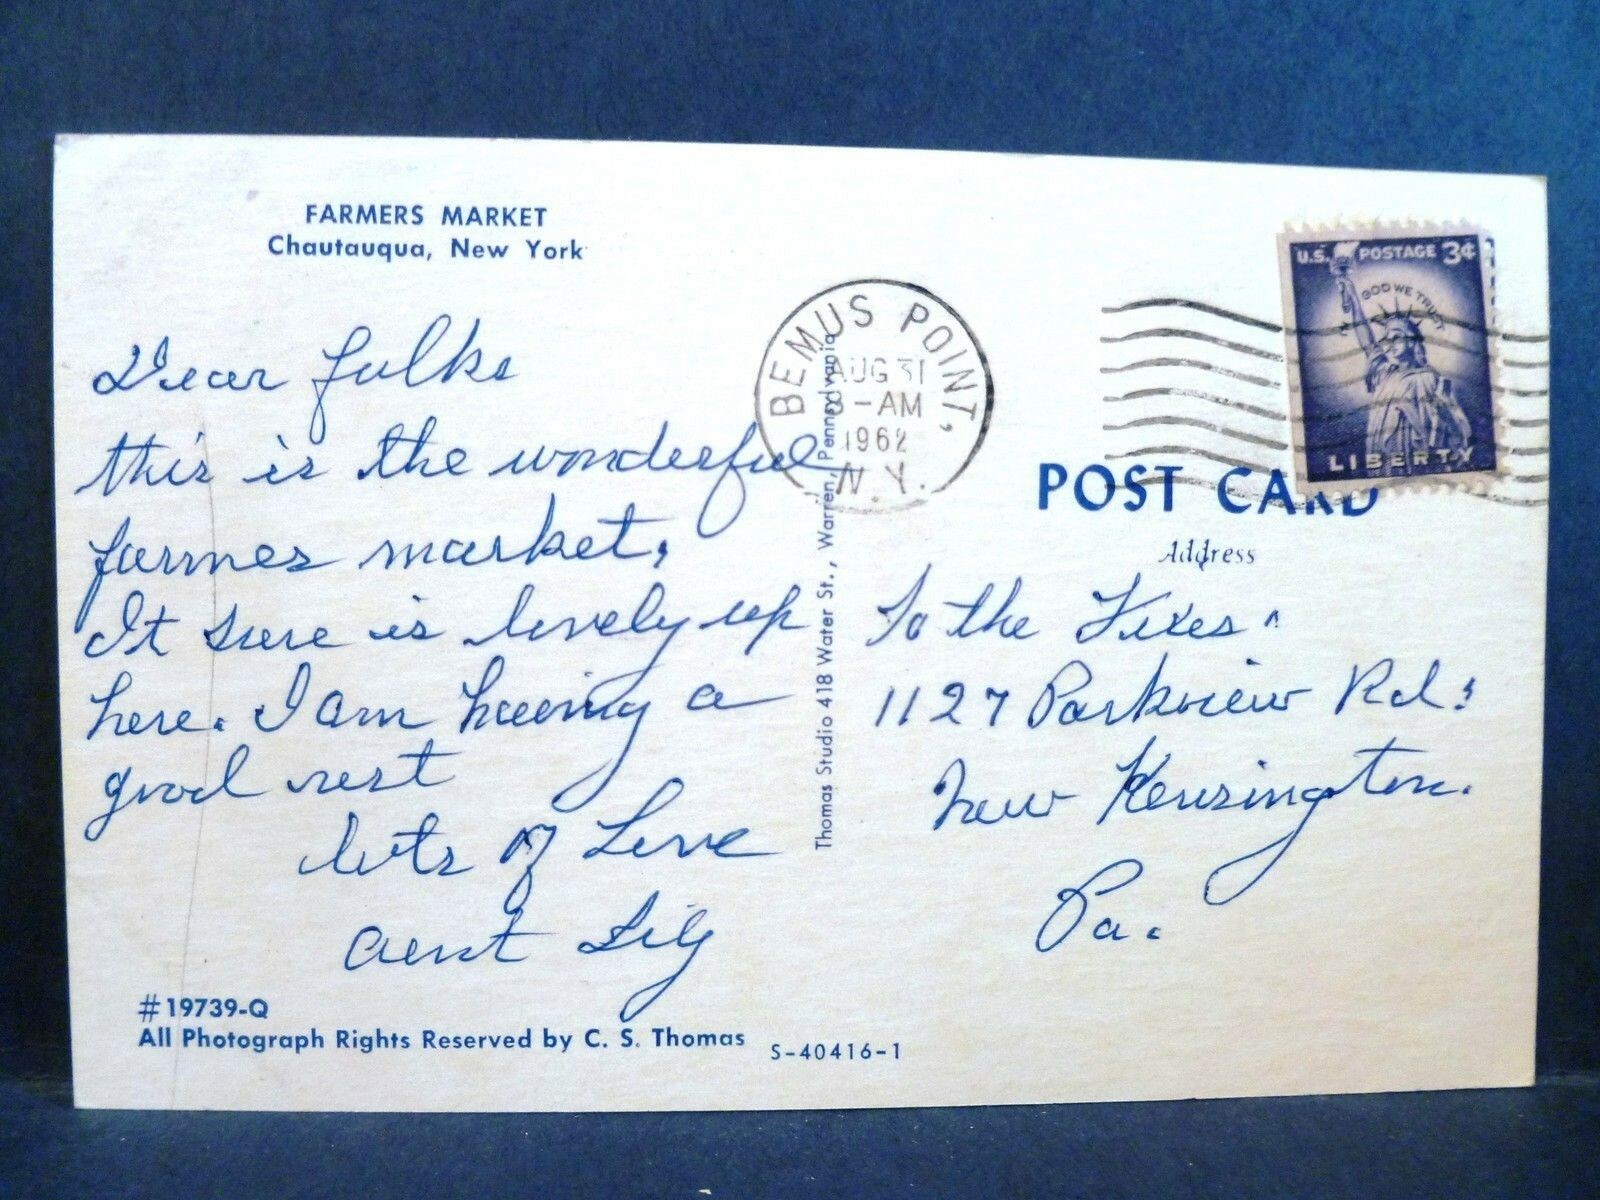 FARMERS MARKET
Chautauqua, New York
Dear folks
this is the wonderful
farmes market,
It sure is lovely up
here. I am having a
good rest
lots of Love
aunt Lily
#19739-Q
All Photograph Rights Reserved by C. S. Thomas
S-40416-1
Thomas Studio 418 Water St., Warren, Pennsylvania
BEMUS POINT,
AUG 31
8-AM
1962
N.Y.
U.S. POSTAGE 3¢
IN GOD WE TRUST
LIBERTY
POST CARD
Address
To the
1127 Parkview Rd.
New Kensington.
Pa.